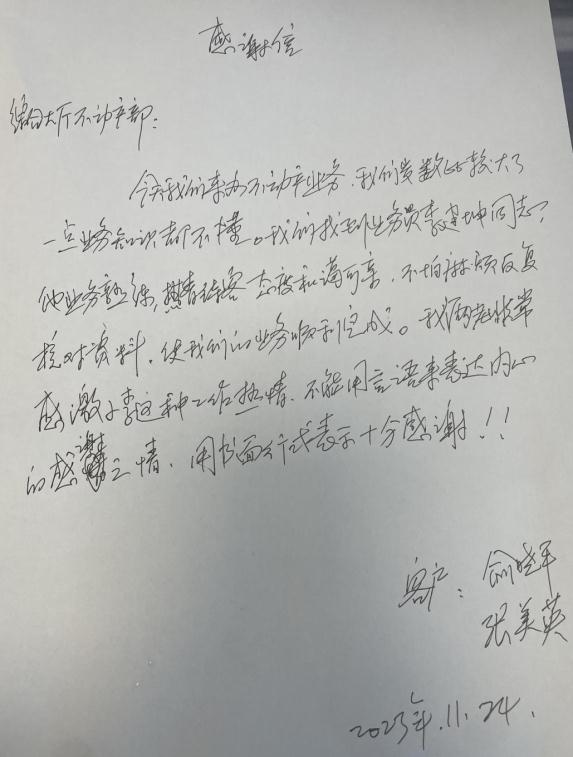 感谢信
综合大厅不动产部:
今天我们来办不动产业务,我们岁数比较大了
一点业务知识都不懂。我们找到业务员李建坤同志,
他业务熟练,热情待客态度和蔼可亲,不怕麻烦反复
核对资料,使我们的业务顺利完成。我俩老非常
感激小李这种工作热情,不能用言语来表达内心
的感谢之情,用书面形式表示十分感谢!!!
客户:俞晓军
张美英
2023年.11.24.